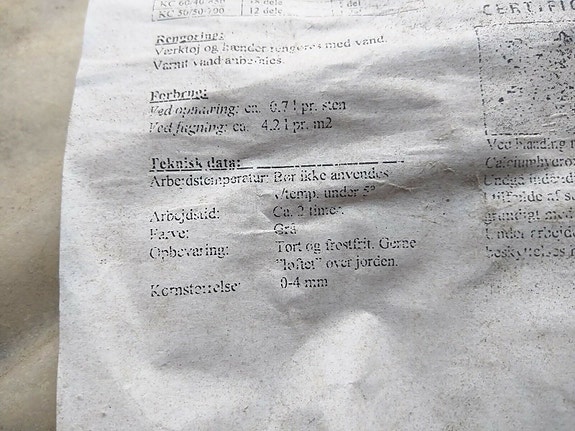 KC 60/40/850 18 dele 1 del
KC 50/50/700 12 dele 1 del
CERTIFIC
Rengøring:
Værktøj og hænder rengøres med vand.
Varmt vand anbefales.
Forbrug:
Ved opmuring: ca. 0,7 l pr. sten
Ved fugning: ca. 4,2 l pr. m2
Teknisk data:
Arbejdstemperatur: Bør ikke anvendes
v/temp. under 5°
Arbejdstid: Ca. 2 timer.
Farve: Grå
Opbevaring: Tørt og frostfrit. Gerne
"løftet" over jorden.
Kornstørrelse: 0-4 mm
Ved blanding
Calciumhydrox
Undgå indånd
Tilfælde af
grundigt med
Under arbejde
beskyttelses